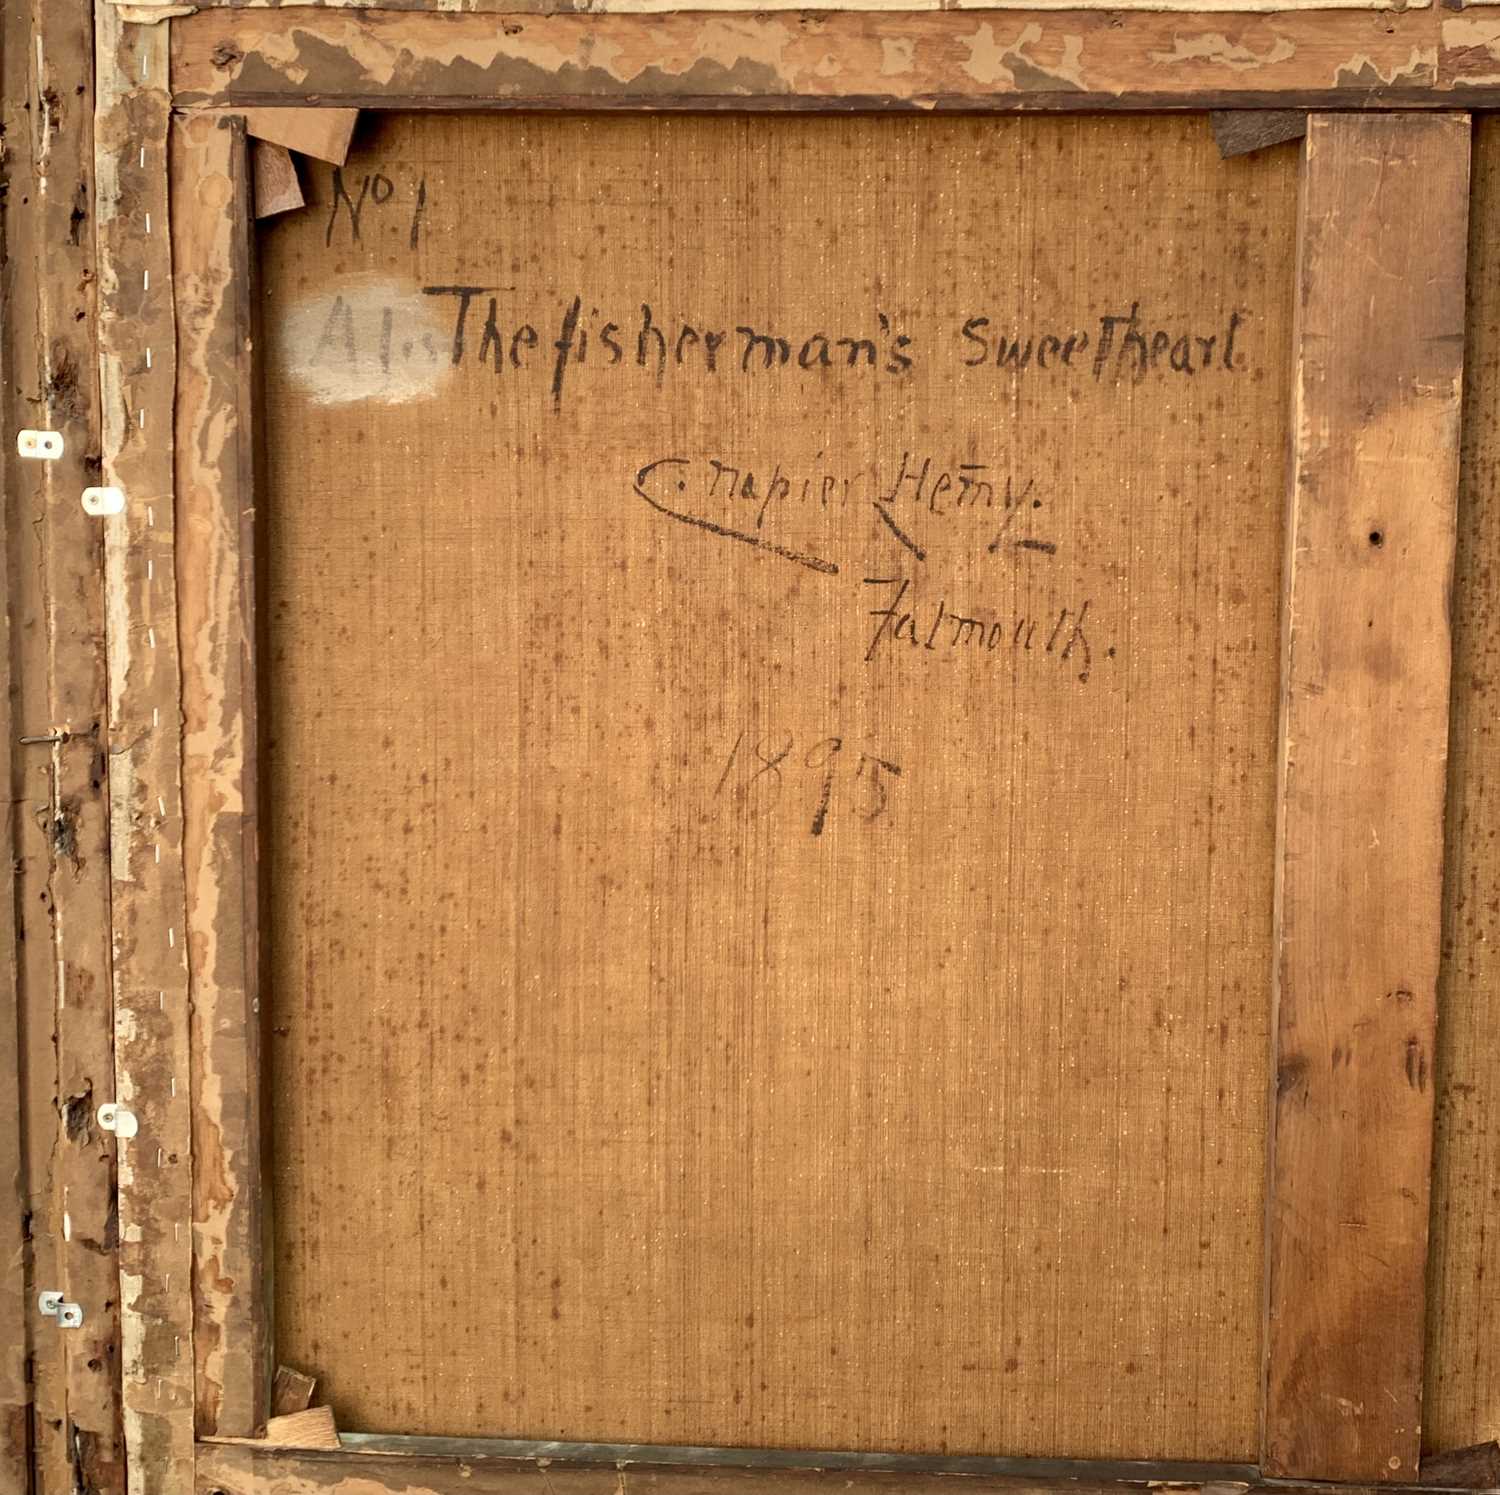 No 1
The fisherman's sweetheart
C. napier Hemy.
Falmouth.
1895